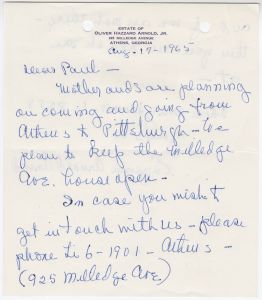 ESTATE OF
OLIVER HAZZARD ARNOLD, JR.
925 MILLEDGE AVENUE
ATHENS, GEORGIA
Aug. 17-1965
Dear Paul -
Mother and I are planning
on coming and going from
Athens to Pittsburgh - We
plan to keep the Milledge
Ave. house open -
In case you wish to
get in touch with us - please
phone Li 6-1901 - Athens -
(925 Milledge Ave.)